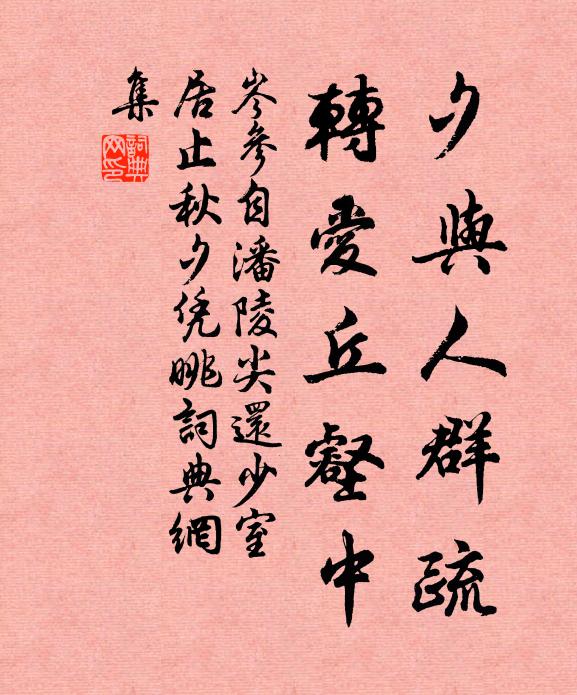 夕與人群疏
轉愛丘壑中
岑參自潘陵尖還少室
居止秋夕凭眺詞典網
集
詞典网印